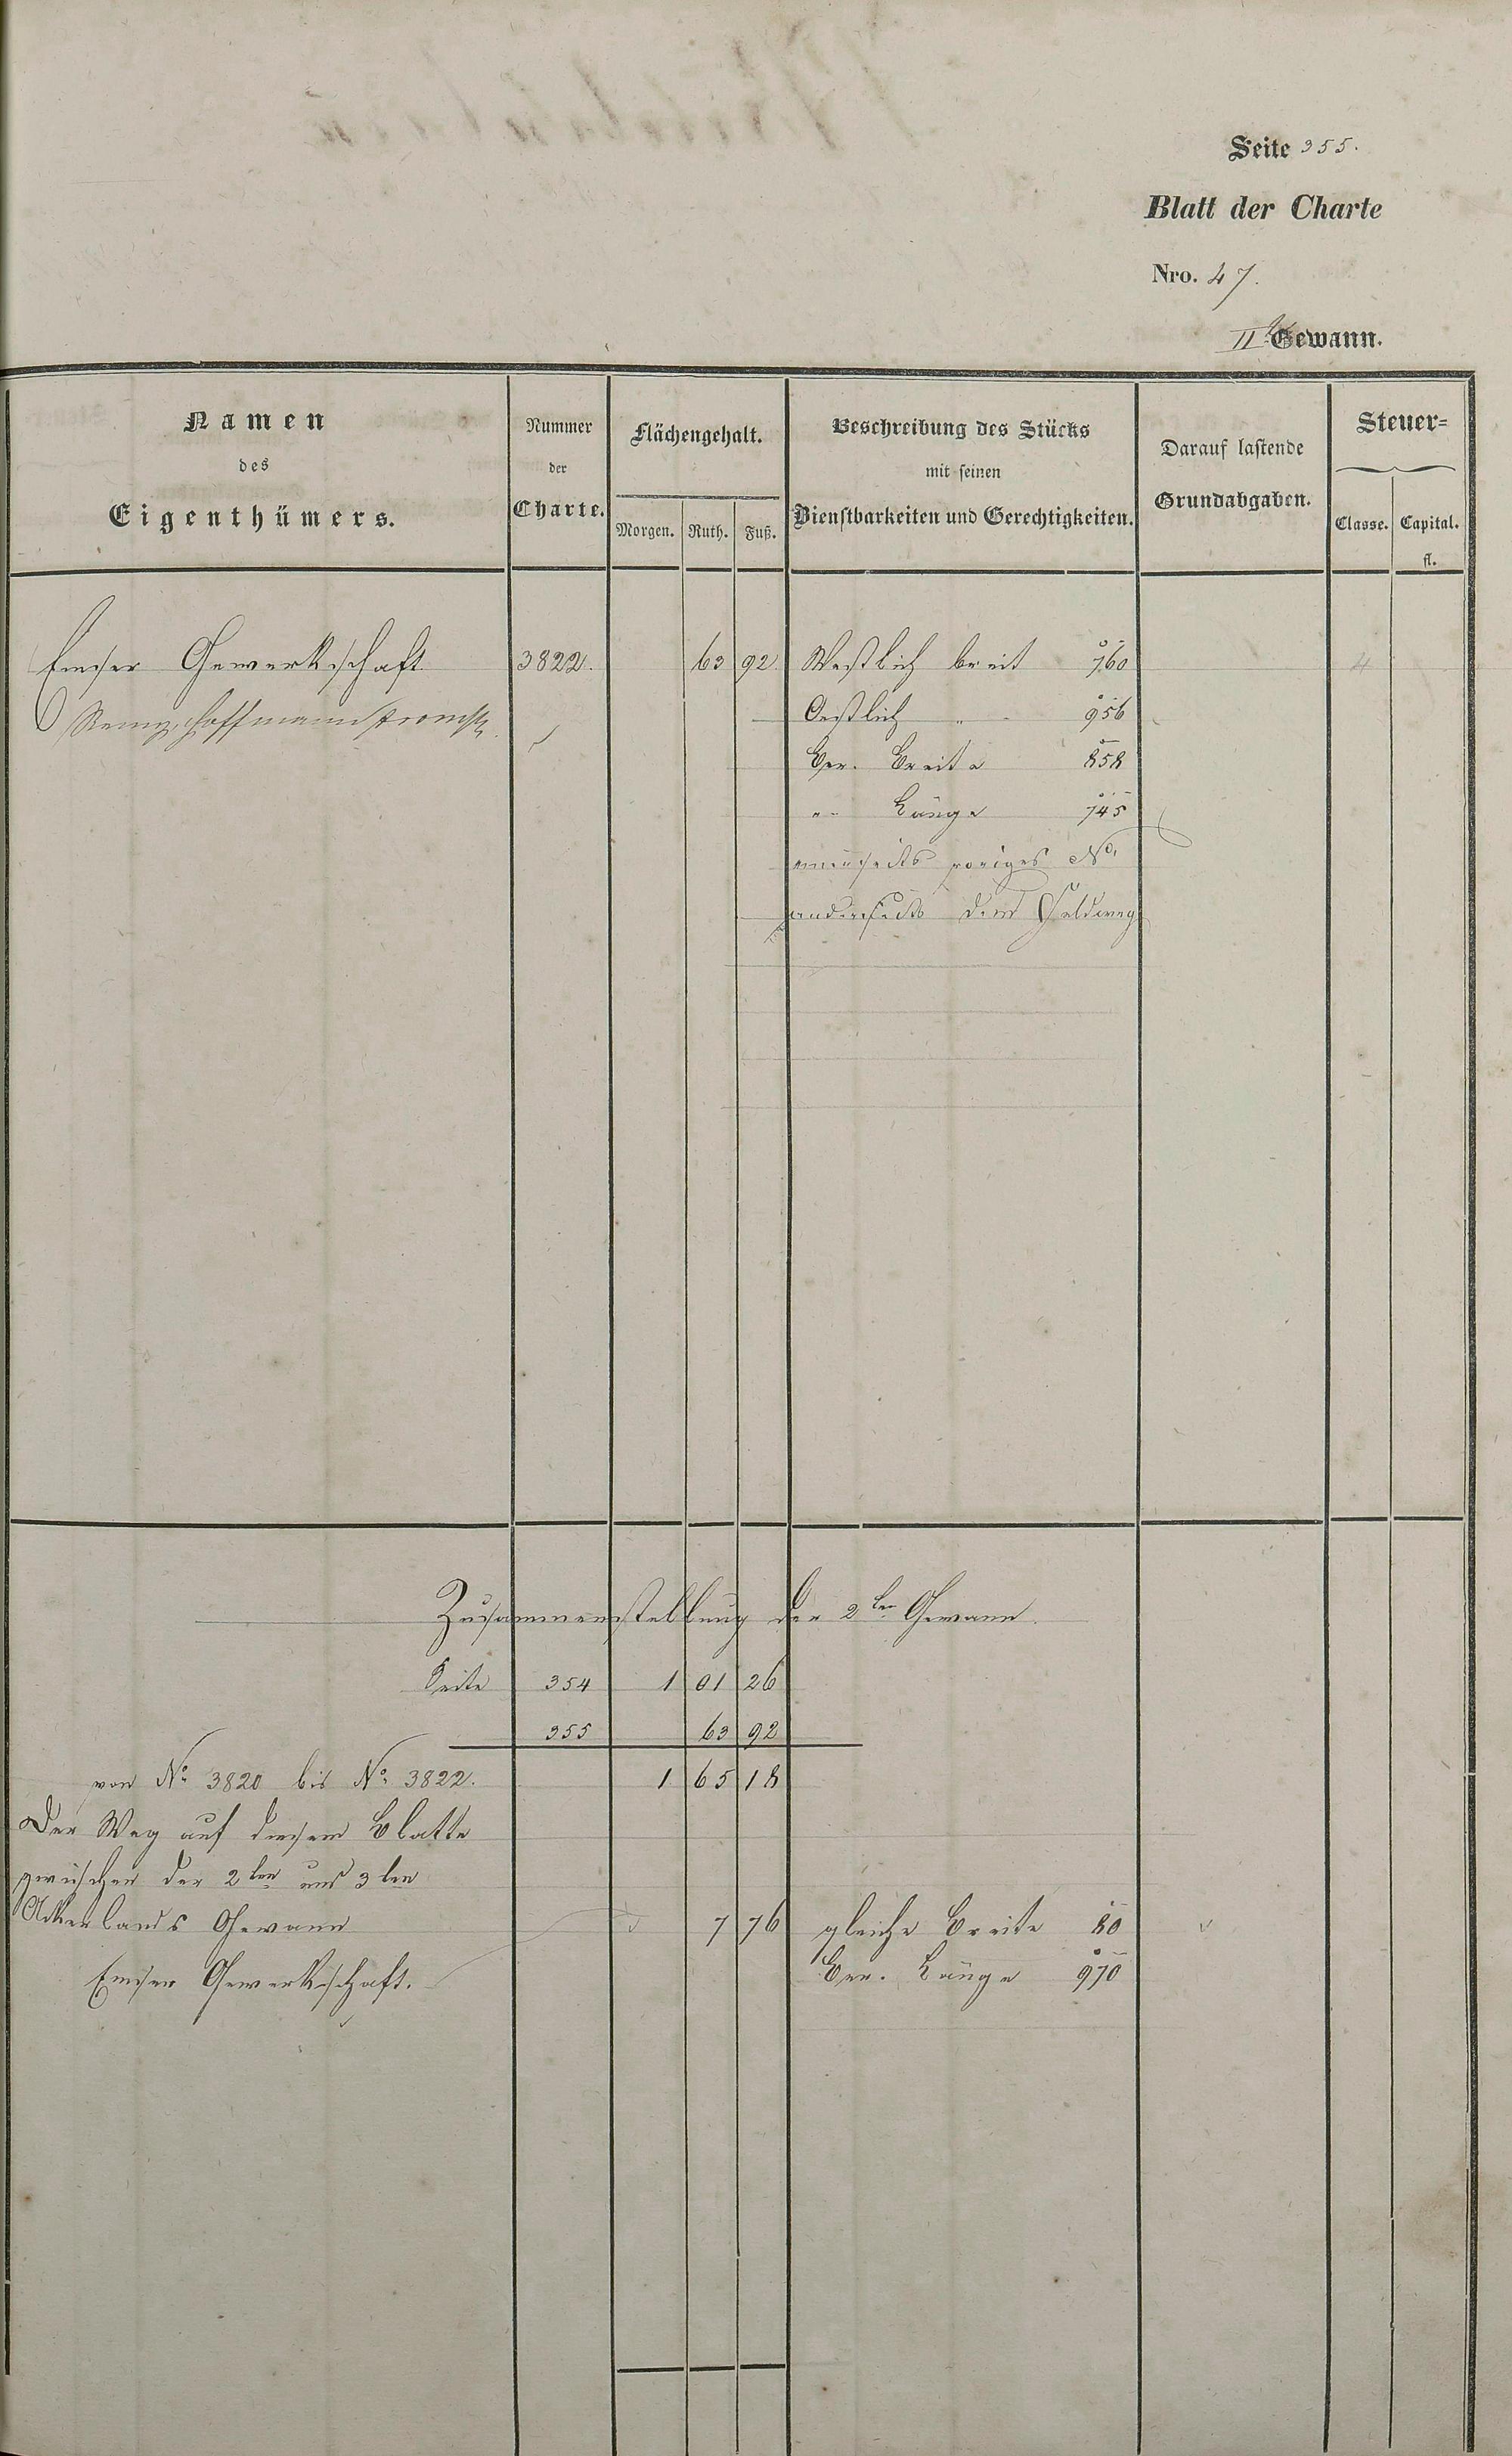 Seite 355.
Blatt der Charte
Nro. 47.
IIte Gewann.
Namen
des
Eigenthümers.
Nummer
der
Charte.
Flächengehalt.
Morgen. Ruth. Fuß.
Beschreibung des Stücks
mit seinen
Dienstbarkeiten und Gerechtigkeiten.
Darauf lastende
Grundabgaben.
Steuer=
Classe. Capital.
fl.
Emser Gewerkschaft 3822. 63 92 Westlich breit 760 4
Hoffmann
Oestlich " 956
Ger. Breite 858
" Länge 745
einerseits voriges No.
anderseits dem Feldweg
Zusammenstellung der 2ten Gewann.
Seite 354 1 01 26
355 63 92
von No. 3820 bis No. 3822. 1 65 18
Der Weg auf diesem Blatte
zwischen der 2ten und 3ten
Ackerlands Gewann 7 76 gleiche Breite 80
Emser Gewerkschaft. Ger. Länge 970